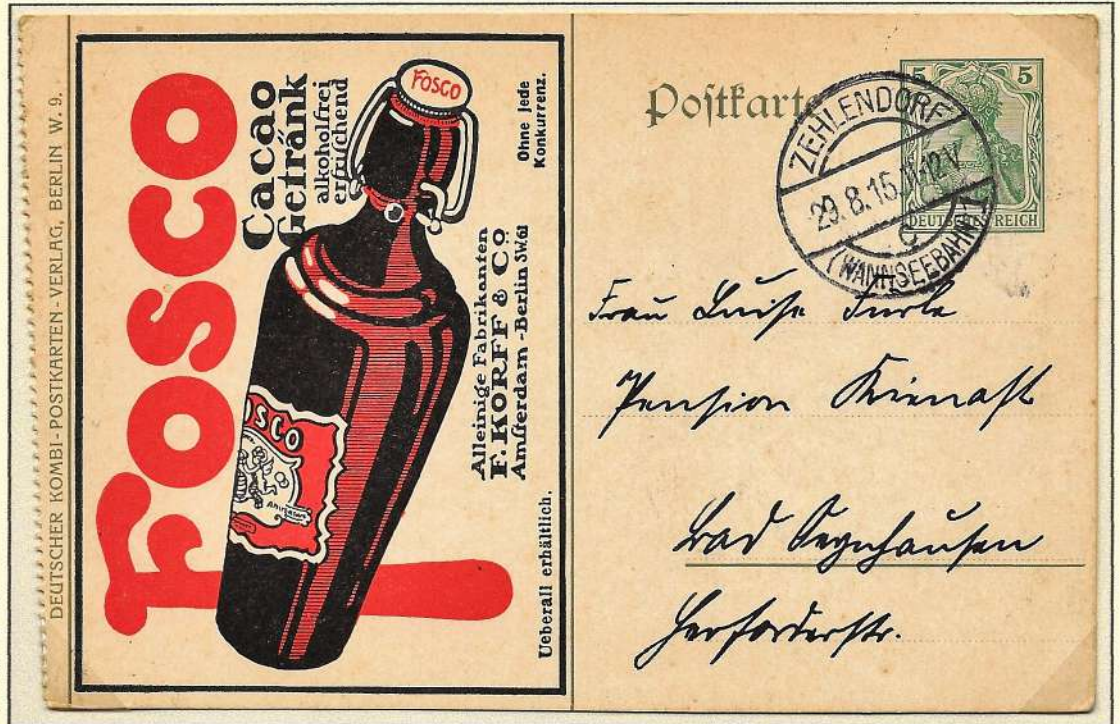 DEUTSCHER KOMBI-POSTKARTEN-VERLAG, BERLIN W. 9.
FOSCO
Cacao
Getränk
alkoholfrei
erfrischend
FOSCO
Ohne jede
Konkurrenz.
OSCO
Alleinige Fabrikanten
F. KORFF & CO
Amsterdam-Berlin SW/61
Ueberall erhältlich.
Postkarte
5 5
DEUTSCHES REICH
ZEHLENDORF
29.8.15.11-12V.
c
(WANNSEEBAHN)
Frau Luise
Pension Kienast
Bad Oeynhausen
Herforderstr.